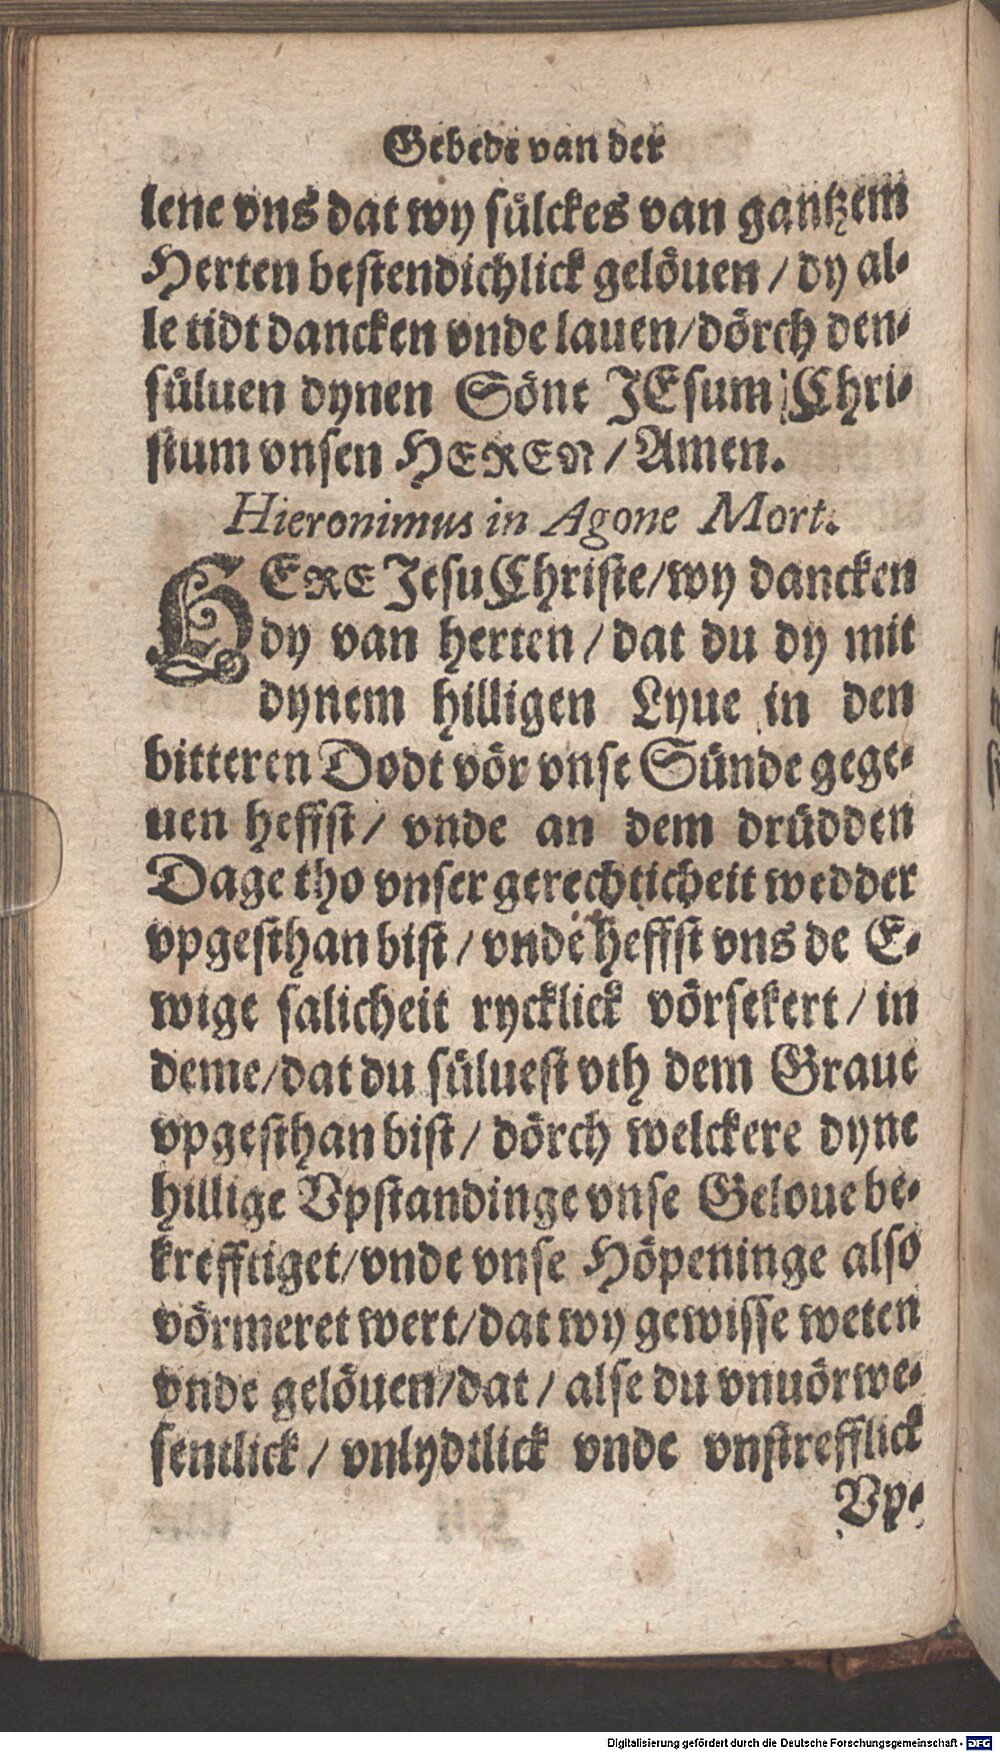 Gebede van der
lene vns dat wy sülckes van gantzem
Herten bestendichlick gelöuen / dy al-
le tidt dancken vnde lauen / dörch den-
süluen dynen Söne JEsum Chri-
stum vnsen HEREN / Amen.
Hieronimus in Agone Mort.
HERE Jesu Christe / wy dancken
dy van herten / dat du dy mit
dynem hilligen Lyue in den
bitteren Dodt vör vnse Sünde gege-
uen heffst / vnde an dem drüdden
Dage tho vnser gerechticheit wedder
vpgesthan bist / vnde heffst vns de E-
wige salicheit rycklick vörsekert / in
deme / dat du süluest vth dem Graue
vpgesthan bist / dörch welckere dyne
hillige Vpstandinge vnse Geloue be-
krefftiget / vnde vnse Höpeninge also
vörmeret wert / dat wy gewisse weten
vnde gelöuen / dat / alse du vnuörwe-
sentlick / vnlydtlick vnde vnstrefflick
Vp-
Digitalisierung gefördert durch die Deutsche Forschungsgemeinschaft - DFG